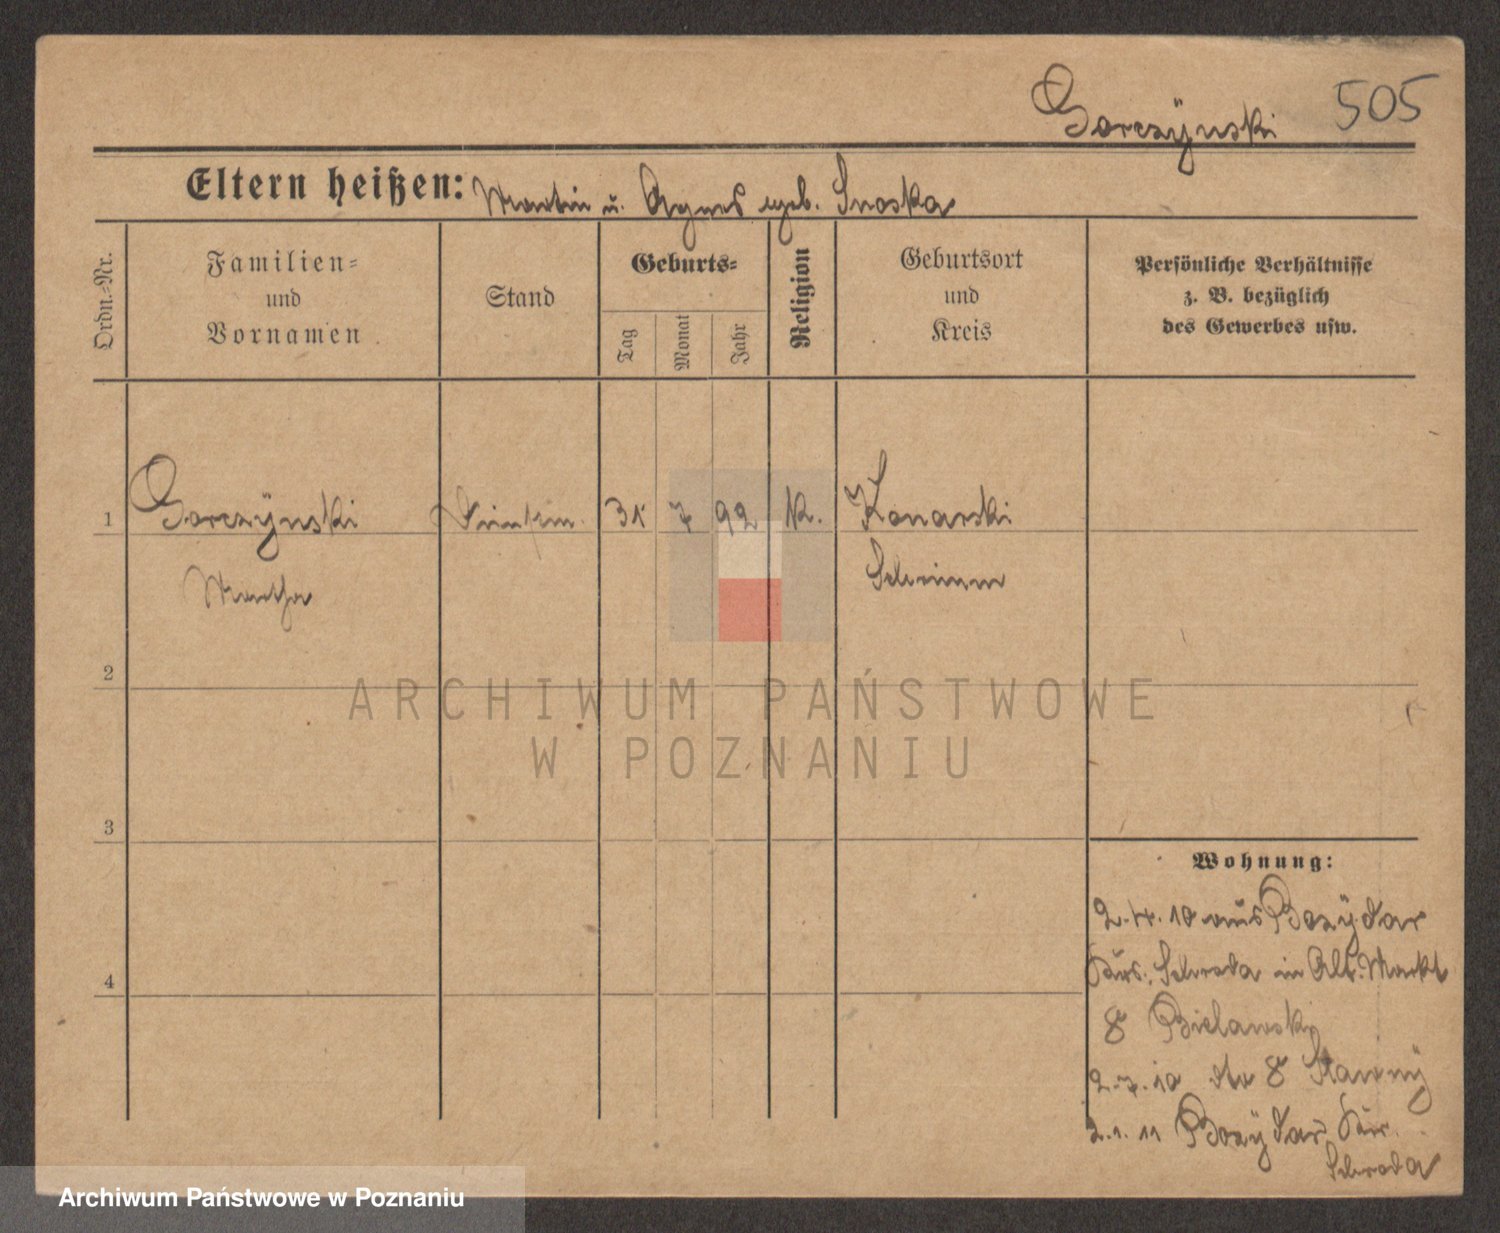 Gorczÿnski 505
Eltern heißen: Martin u. Agnes geb. Snoska
Ordn.-Nr.
Familien-
und
Vornamen
Stand
Geburts-
Tag
Monat
Jahr
Religion
Geburtsort
und
Kreis
Persönliche Verhältnisse
z. B. bezüglich
des Gewerbes usw.
1 Gorczÿnski 31 7 92 K. Konarski
Martha Schrimm
2
3
4
Wohnung:
2.4.10 aus Bozÿdar
Krs. Schroda in Alt. Markt
8 Bielawski
2.7.10 dto 8 Stawnÿ
2.1.11 Bozÿdar Kr.
Schroda
ARCHIWUM PAŃSTWOWE
W POZNANIU
Archiwum Państwowe w Poznaniu